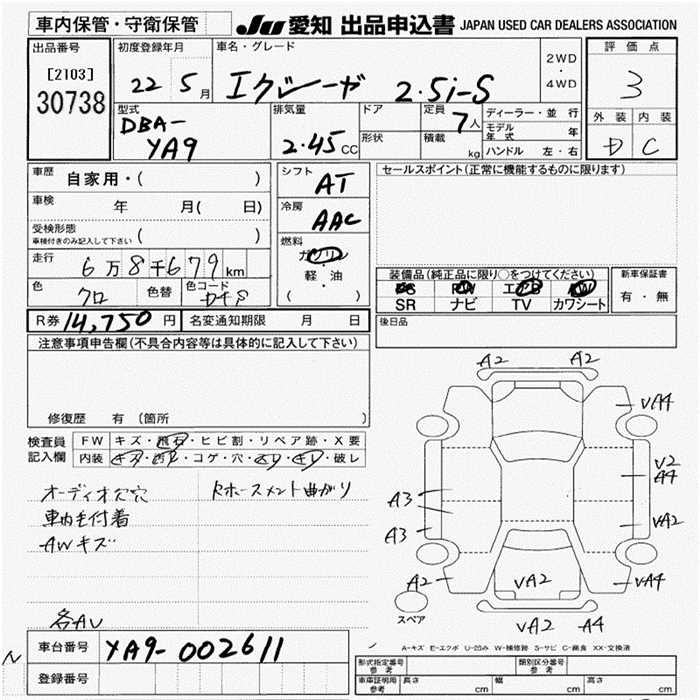 車内保管・守衛保管
JU 愛知 出品申込書 JAPAN USED CAR DEALERS ASSOCIATION
出品番号
[2103]
30738
初度登録年月
22 5月
車名・グレード
エクシーガ 2.5i-S
2WD
・
4WD
評価点
3
外装 内装
D C
型式
DBA-
YA9
排気量
2.45CC
ドア
形状
定員 7人
積載 kg
ディーラー・並行
モデル年式 年
ハンドル 左・右
車歴 自家用・( )
車検 年 月( 日)
受検形態
車検付きのみ記入して下さい ( )
走行 6万8千679km
色 クロ 色替 色コード
シフト AT
冷房 AAC
燃料
ガソリン
軽・油
( )
セールスポイント(正常に機能するものに限ります)
装備品(純正品に限り○をつけてください)
PS PW エアB AW
SR ナビ TV カワシート
新車保証書
有・無
R券 14,750円 名変通知期限 月 日
後日品
注意事項申告欄(不具合内容等は具体的に記入して下さい)
修復歴 有 (箇所 )
検査員記入欄
FW キズ・飛石・ヒビ割・リペア跡・X要
内装 コゲ・穴・ 破レ
オーディオ穴穴 Rホースメント曲がり
車内毛付着
AWキズ
各AU
A2 A2
VA4
V2
A4
A3
A3
VA2
A2 VA2 VA4
スペア
VA2 A4
A-キズ E-エクボ U-凹み W-補修跡 S-サビ C-腐食 XX-交換済
車台番号 YA9-002611
登録番号
形式指定番号 参考
類別区分番号 参考
車庫証明用 参考 長さ cm 幅 cm 高さ cm